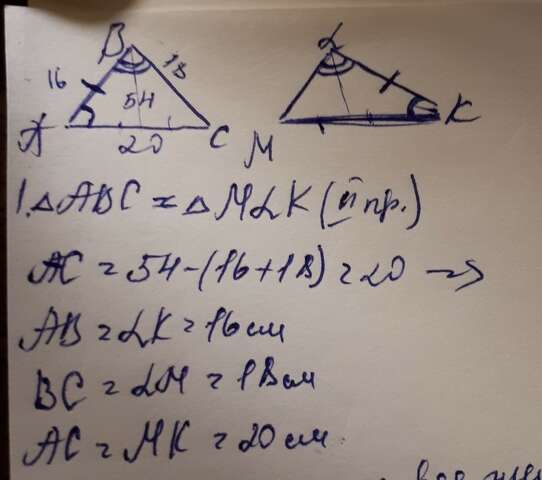 B L
16 18
54
A 20 C M K
1. △ABC = △MLK (II пр.)
AC = 54 - (16+18) = 20 →
AB = LK = 16 см
BC = LM = 18 см
AC = MK = 20 см